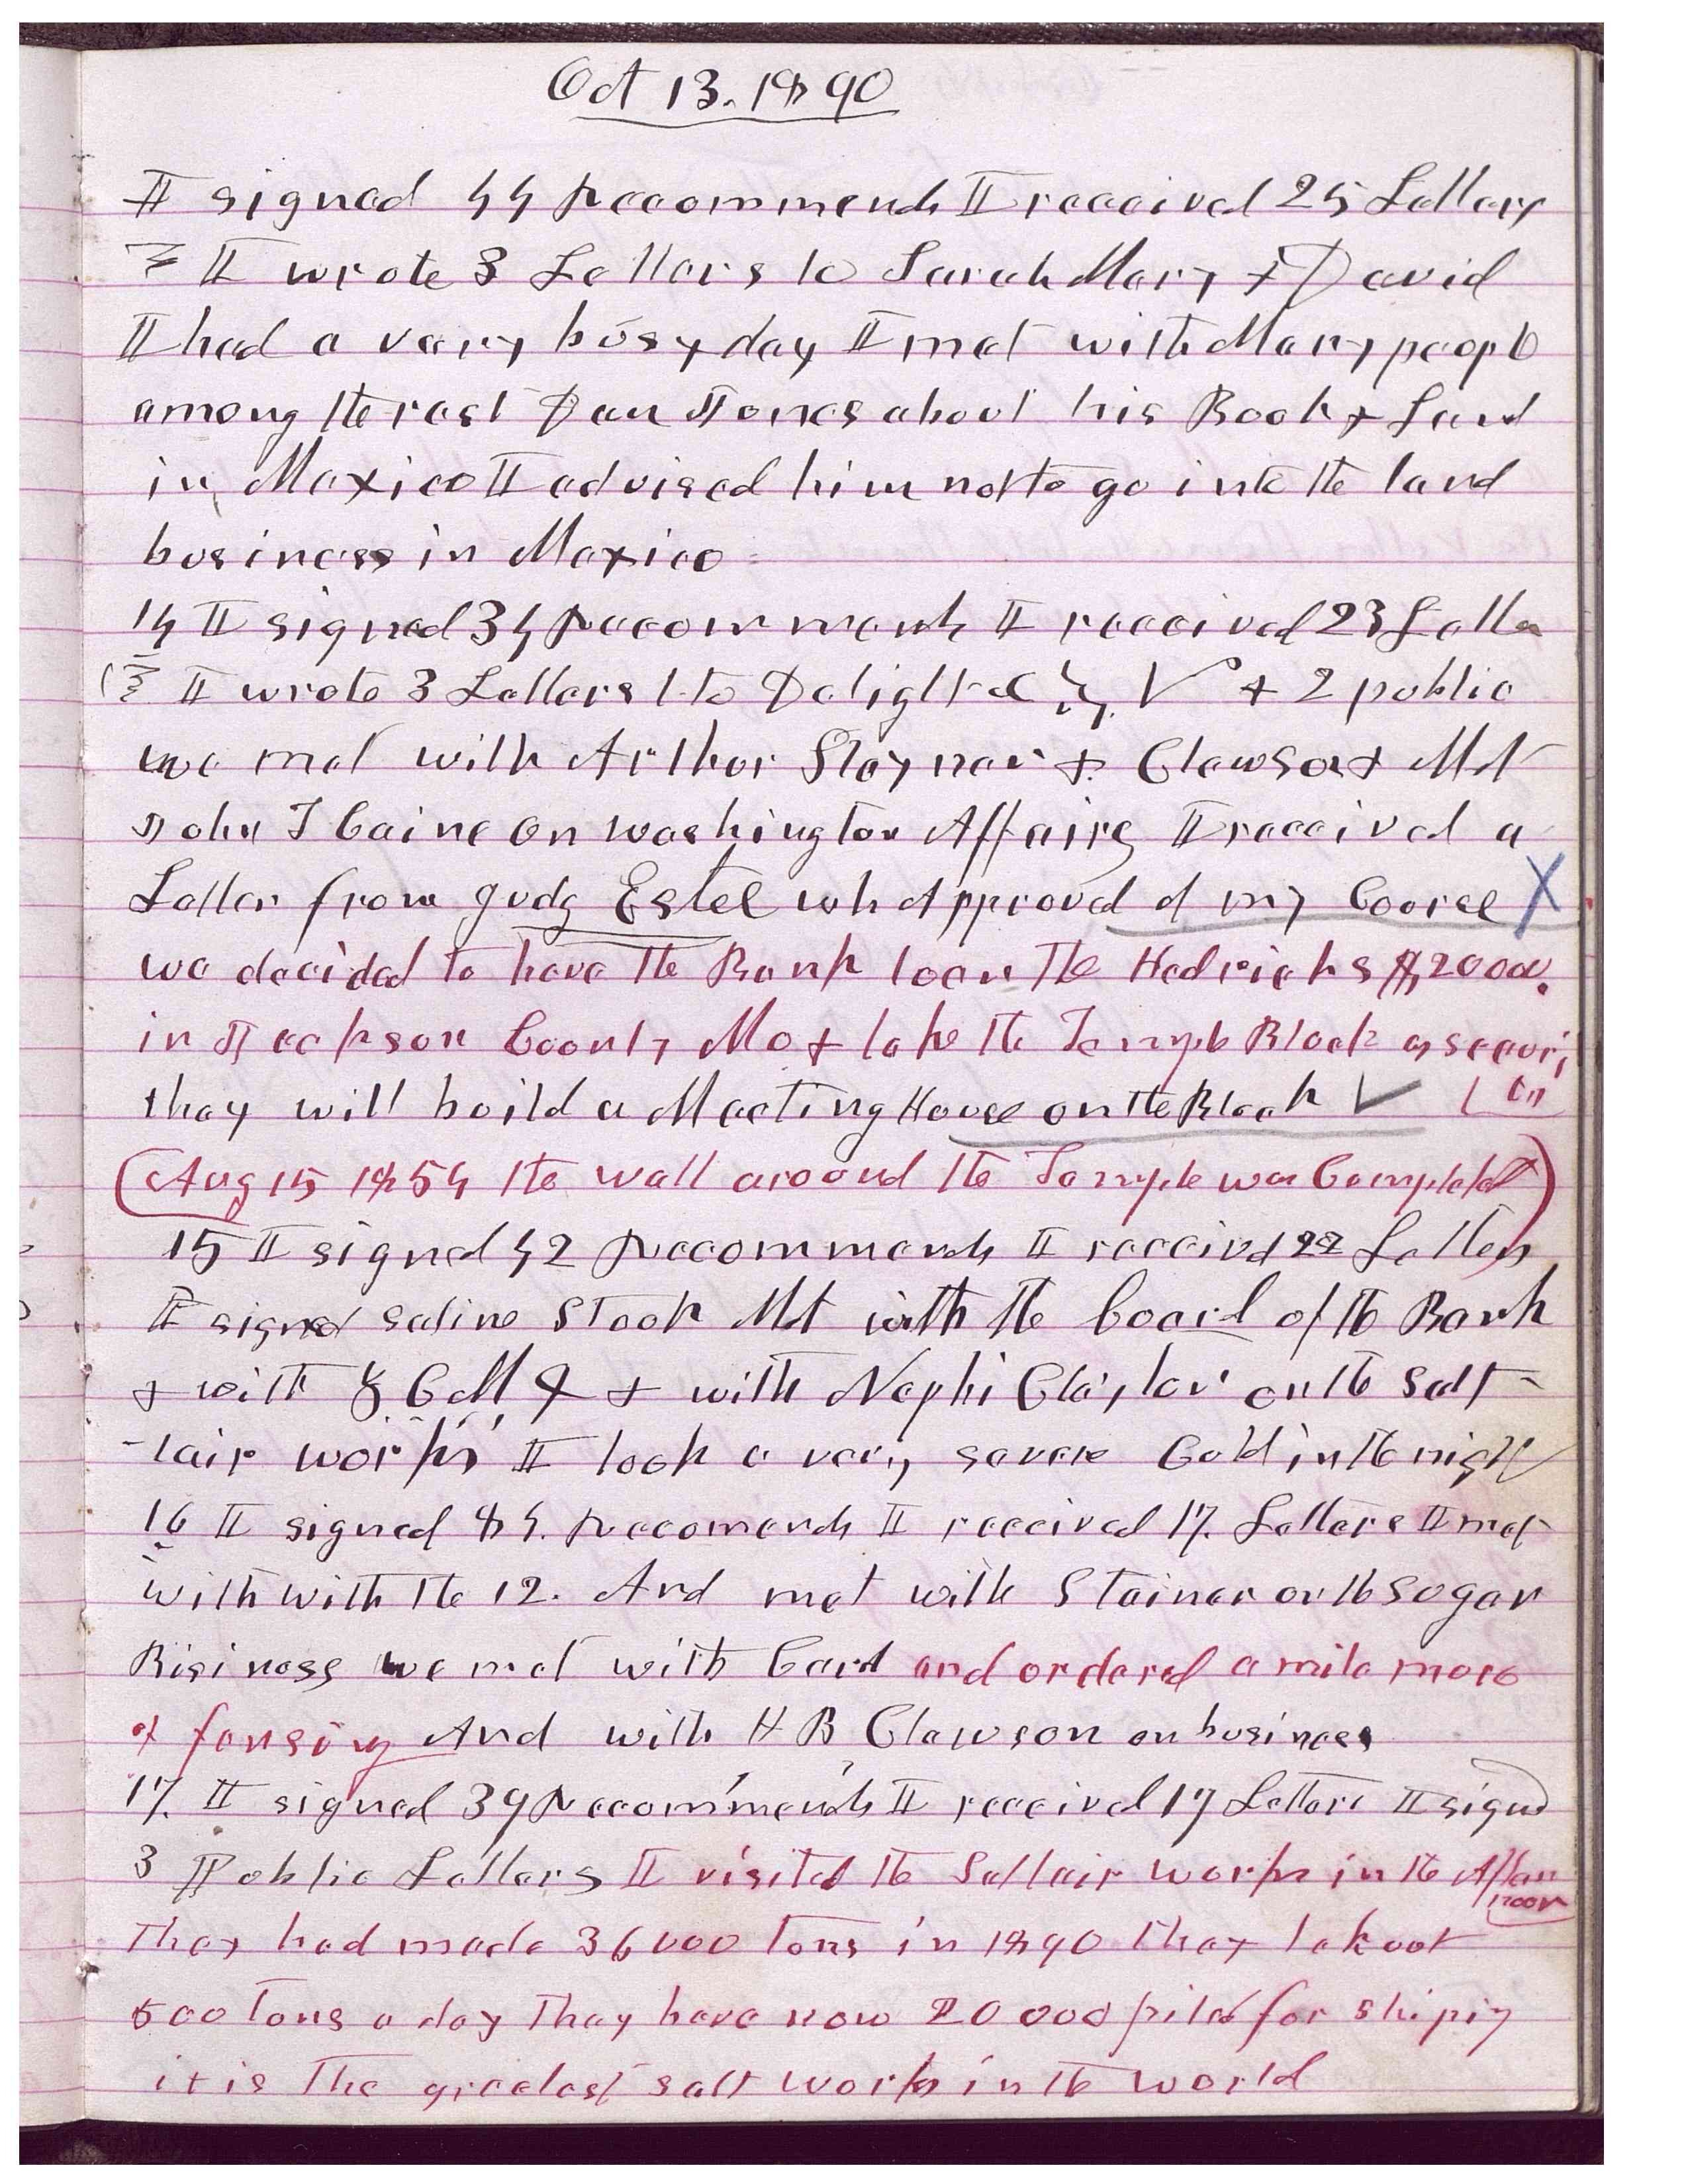 Oct 13. 1890
I signed 44 Recommends I received 25 Letters
I wrote 3 Letters to Sarah Mary & David
I had a very busy day I met with Many people
among the rest Dan Jones about his Book & Land
in Mexico I advised him not to go into the land
business in Mexico
14 I signed 34 Recommends I received 23 Letters
I wrote 3 Letters 1 to Delight & 2 public
we met with Arthur Stayner & Clawson & Met
John T Caine on Washington Affairs I received a
Letter from Judg Estee who Approved of my Course X
we decided to have the Bank loan the Hedricks $2000.
in Jackson County Mo & take the Temple Block as securi
they will build a Meeting House on the Block
(Aug 15 1854 the wall around the Temple was Completed)
15 I signed 42 Recommends I received 22 Letters
I signed saline Stock Met with the board of the Bank
& with Z C M I & with Nephi Clayton on the Salt-
-lair works I took a very severe Cold in the night
16 I signed 84. Recomends I received 17. Letters I met
with with the 12. And met with Stainer on the Sugar
Bisiness we met with Card and ordered a mile more
of fensing And with H B Clawson on business
17. I signed 39 Recommends I received 17 Letters I signd
3 Public Letters I visited the Saltair works in the After
noon
They had made 36000 tons in 1890 they take out
500 tons a day They have now 20000 piled for shiping
it is The greatest salt works in the world